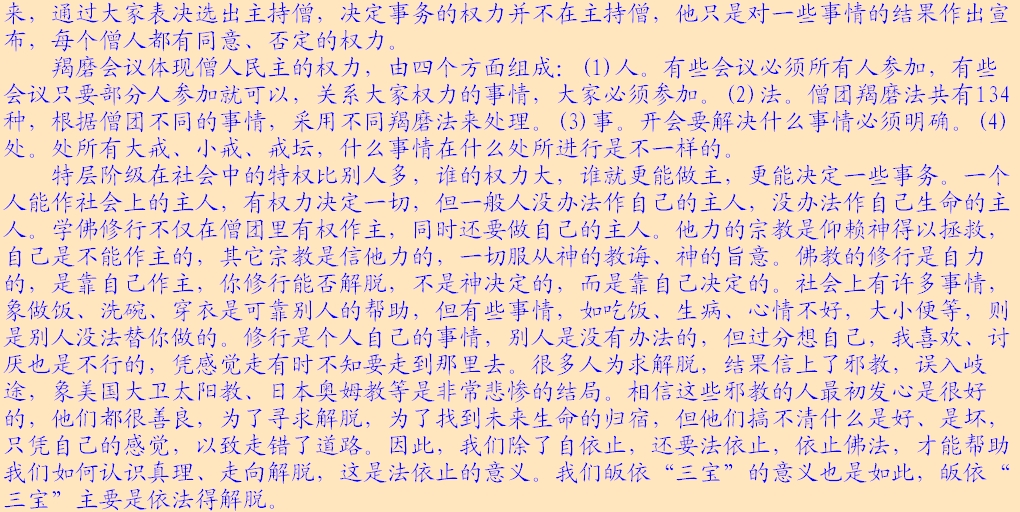 来，通过大家表决选出主持僧，决定事务的权力并不在主持僧，他只是对一些事情的结果作出宣
布，每个僧人都有同意、否定的权力。
羯磨会议体现僧人民主的权力，由四个方面组成：(1)人。有些会议必须所有人参加，有些
会议只要部分人参加就可以，关系大家权力的事情，大家必须参加。(2)法。僧团羯磨法共有134
种，根据僧团不同的事情，采用不同羯磨法来处理。(3)事。开会要解决什么事情必须明确。(4)
处。处所有大戒、小戒、戒坛，什么事情在什么处所进行是不一样的。
特层阶级在社会中的特权比别人多，谁的权力大，谁就更能做主，更能决定一些事务。一个
人能作社会上的主人，有权力决定一切，但一般人没办法作自己的主人，没办法作自己生命的主
人。学佛修行不仅在僧团里有权作主，同时还要做自己的主人。他力的宗教是仰赖神得以拯救，
自己是不能作主的，其它宗教是信他力的，一切服从神的教诲、神的旨意。佛教的修行是自力
的，是靠自己作主，你修行能否解脱，不是神决定的，而是靠自己决定的。社会上有许多事情，
象做饭、洗碗、穿衣是可靠别人的帮助，但有些事情，如吃饭、生病、心情不好，大小便等，则
是别人没法替你做的。修行是个人自己的事情，别人是没有办法的，但过分想自己，我喜欢、讨
厌也是不行的，凭感觉走有时不知要走到那里去。很多人为求解脱，结果信上了邪教，误入歧
途，象美国大卫太阳教、日本奥姆教等是非常悲惨的结局。相信这些邪教的人最初发心是很好
的，他们都很善良，为了寻求解脱，为了找到未来生命的归宿，但他们搞不清什么是好、是坏，
只凭自己的感觉，以致走错了道路。因此，我们除了自依止，还要法依止，依止佛法，才能帮助
我们如何认识真理、走向解脱，这是法依止的意义。我们皈依“三宝”的意义也是如此，皈依“
三宝”主要是依法得解脱。